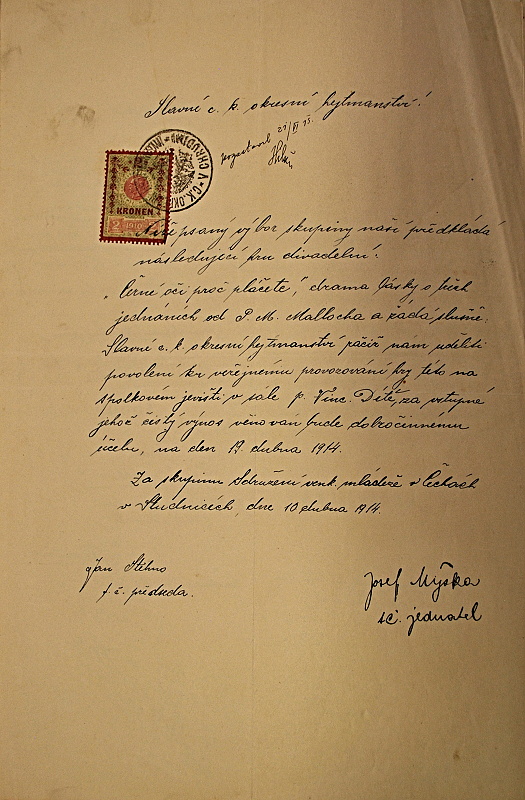 Slavné c. k. okresní hejtmanství!
CHRUDIMI
C.K. OKR
KRONEN
2 1910
Níže psaný výbor skupiny naší předkládá
následující hru divadelní:
„Černé oči proč pláčete", drama lásky o třech
jednáních od P. M. Mallocha a žádá slušně:
Slavné c. k. okresní hejtmanství račiž nám uděliti
povolení ku veřejnému provozování hry této na
spolkovém jevišti v sále p. Vinc. Dítě, za vstupné
jehož čistý výnos věnován bude dobročinnému
účelu, na den 19. dubna 1914.
Za skupinu Sdružení venk. mládeže v Čechách
v Studnicích, dne 10 dubna 1914.
Jan Stehno
t. č. předseda.
Josef Myška
tč. jednatel